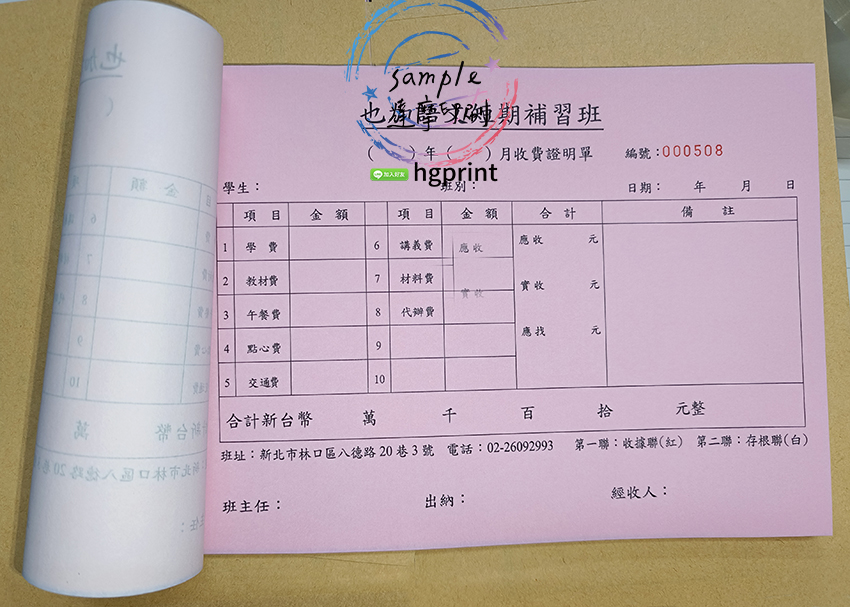 sample
期補習班
( ) 年 ( ) 月收費證明單 編號：000508
加入好友 hgprint
學生： 班別： 日期： 年 月 日
項 目 金 額 項 目 金 額 合 計 備 註
1 學 費 6 講義費 應收 應收 元
2 教材費 7 材料費 實收 實收 元
3 午餐費 8 代辦費 應找 元
4 點心費 9
5 交通費 10
合計新台幣 萬 千 百 拾 元整
班址：新北市林口區八德路20巷3號 電話：02-26092993 第一聯：收據聯(紅) 第二聯：存根聯(白)
班主任： 出納： 經收人：